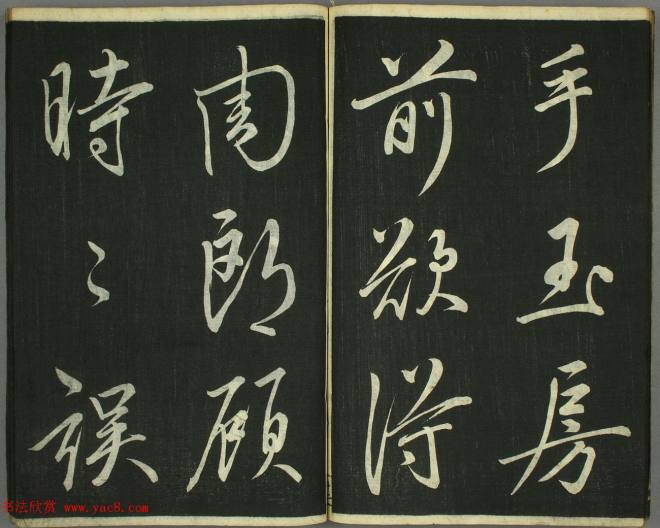 手玉房
前欲得
周郎顾
時〻誤
书法欣赏 www.yac8.com